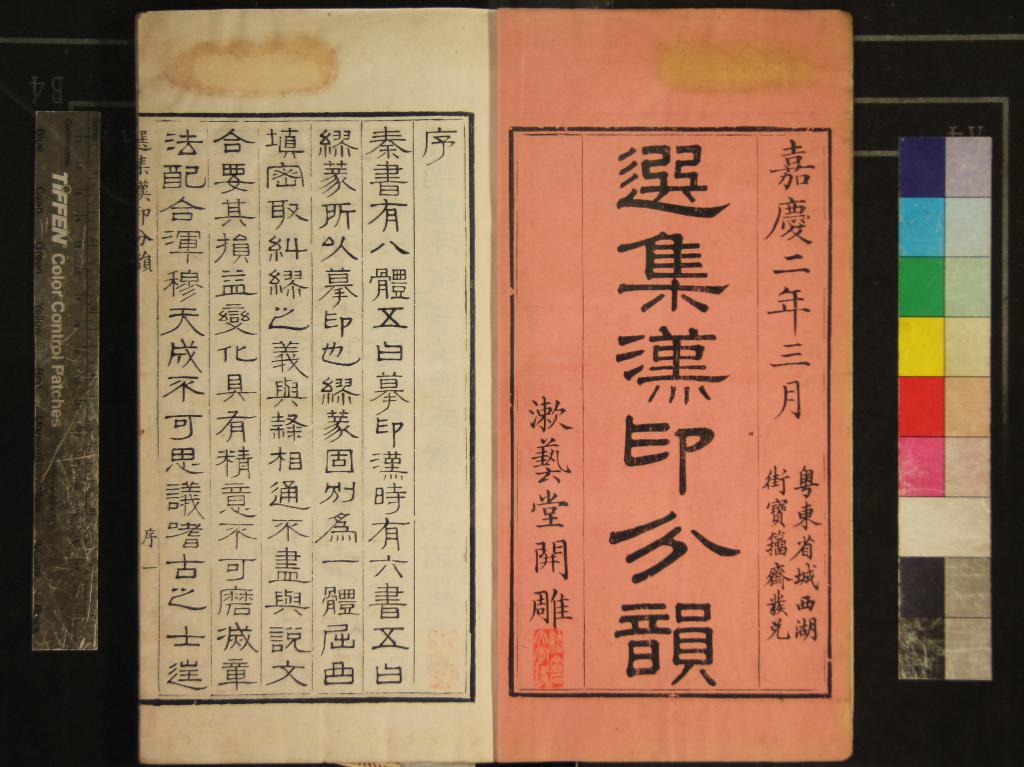 嘉慶二年三月
粵東省城西湖
街寶籀齋發兌
選集漢印分韻
漱藝堂開雕
序
秦書有八體五曰摹印漢時有六書五曰
繆篆所以摹印也繆篆固別為一體屈曲
填密取糾繆之義與隸相通不盡與說文
合要其損益變化具有精意不可磨滅章
法配合渾穆天成不可思議嗜古之士往
選集漢印分韻
序 一
TIFFEN Color Control Patches
B4